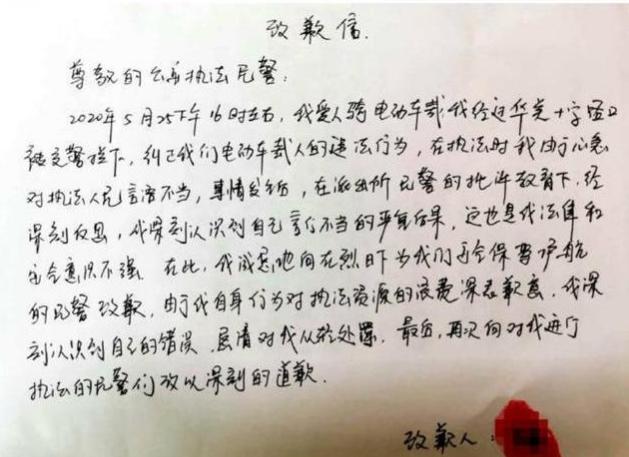 致歉信.
尊敬的公安执法民警:
2020年5月25下午16时左右，我爱人骑电动车载我经过华美十字路口
被交警拦下，纠正我们电动车载人的违法行为，在执法时我由于心急
对执法人员言语不当，事情发生后，在派出所民警的批评教育下，经
深刻反思，我深刻认识到自己言行不当的严重后果，这也是我法律和
安全意识不强。在此，我诚恳地向在烈日下为我们安全保驾护航
的民警致歉，由于我自身行为对执法资源的浪费深表歉意，我深
刻认识到自己的错误，恳请对我从轻处罚。最后，再次向对我进行
执法的民警们致以深刻的道歉.
致歉人: